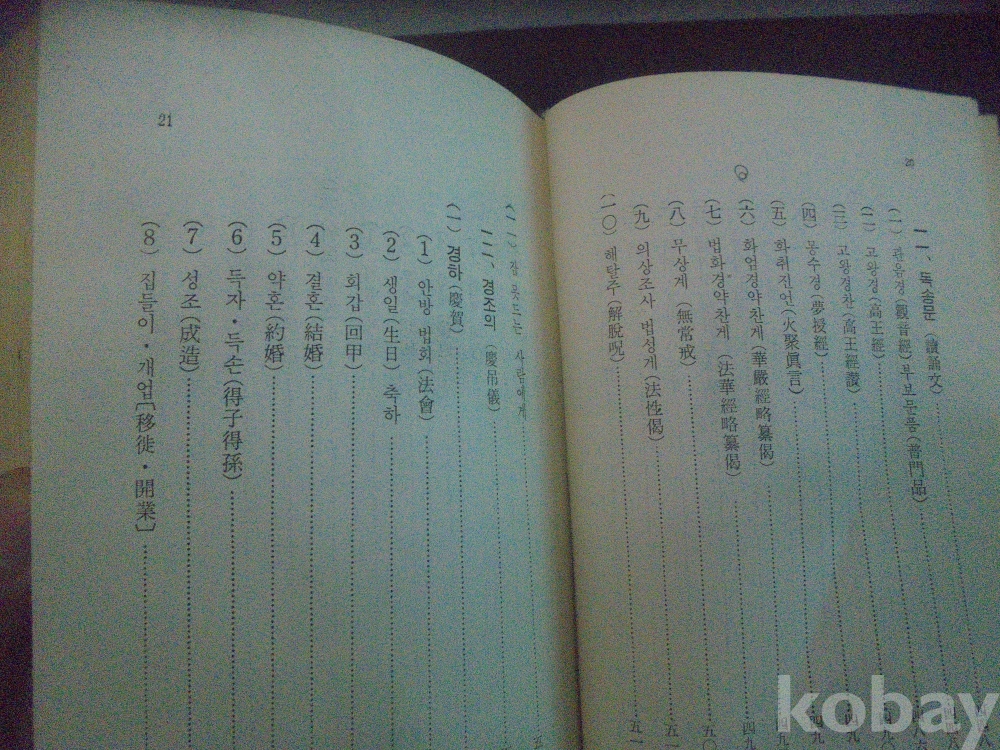 一一、독송문 (讀誦文)
(一) 관음경(觀音經)부보문품(普門品)
(二) 고왕경(高王經)
(三) 고왕경찬(高王經讚)
(四) 몽수경(夢授經)
(五) 화취진언(火聚眞言)
(六) 화엄경약찬게(華嚴經略纂偈)
(七) 법화경약찬게 (法華經略纂偈)
(八) 무상계 (無常戒)
(九) 의상조사 법성게(法性偈)
(一〇) 해탈주(解脫呪)
사람에게
一二、경조의 (慶弔儀)
(一) 경하(慶賀)
(1) 안방 법회(法會)
(2) 생일(生日) 축하
(3) 회갑(回甲)
(4) 결혼(結婚)
(5) 약혼(約婚)
(6) 득자·득손(得子得孫)
(7) 성조(成造)
(8) 집들이·개업[移徙·開業]
21
kobay